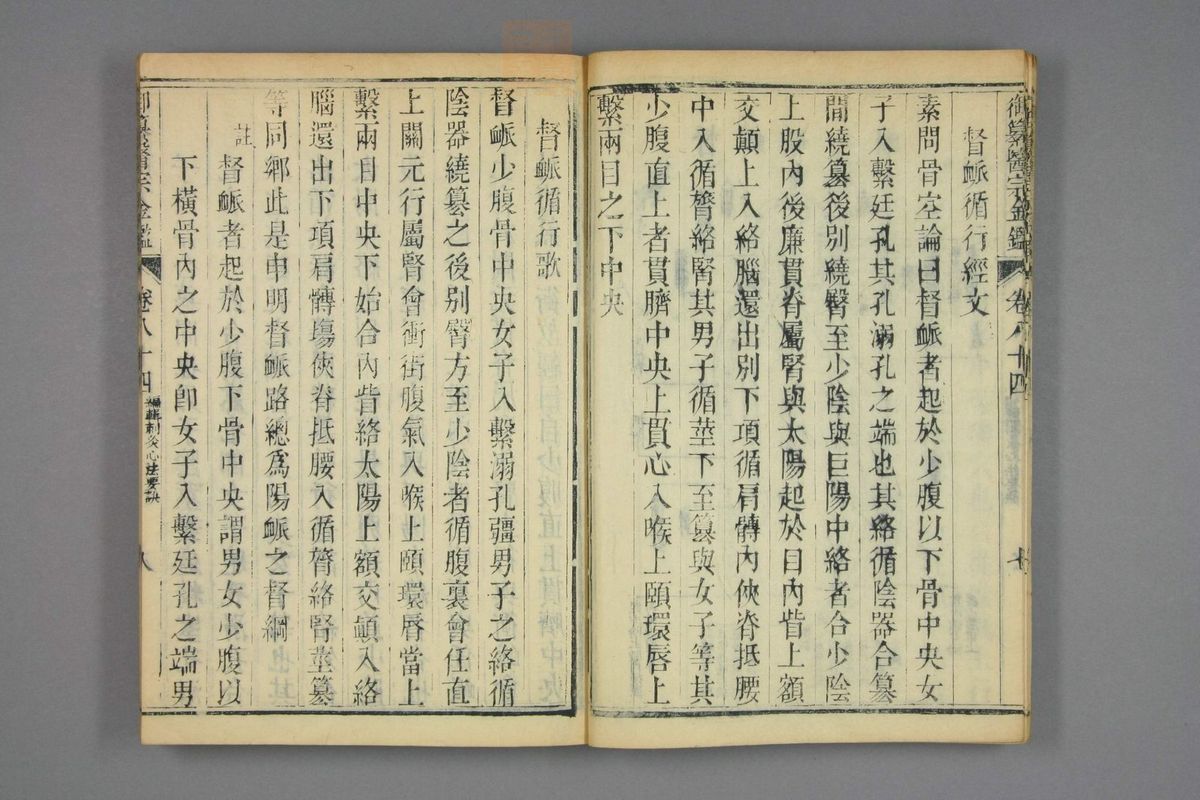 御纂醫宗金鑑 卷八十四 七
督脈循行經文
素問骨空論曰督脈者起於少腹以下骨中央女
子入繫廷孔其孔溺孔之端也其絡循陰器合篡
間繞篡後別繞臀至少陰與巨陽中絡者合少陰
上股內後廉貫脊屬腎與太陽起於目內眥上額
交顛上入絡腦還出別下項循肩髆內俠脊抵腰
中入循膂絡腎其男子循莖下至篡與女子等其
少腹直上者貫臍中央上貫心入喉上頤環唇上
繫兩目之下中央
督脈循行歌
督脈少腹骨中央女子入繫溺孔疆男子之絡循
陰器繞篡之後別臀方至少陰者循腹裏會任直
上關元行屬腎會衝街腹氣入喉上頤環唇當上
繫兩目中央下始合內眥絡太陽上額交顛入絡
腦還出下項肩髆塲俠脊抵腰入循膂絡腎莖篡
等同鄉此是申明督脈路總爲陽脈之督綱
註 督脈者起於少腹下骨中央謂男女少腹以
下橫骨內之中央卽女子入繫廷孔之端男
御纂醫宗金鑑 卷八十四 編輯刺灸心法要訣 八